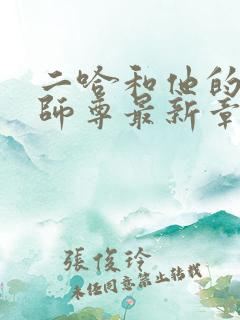 二哈和他的
師尊最新章
張俊玲
未經同意禁止转载